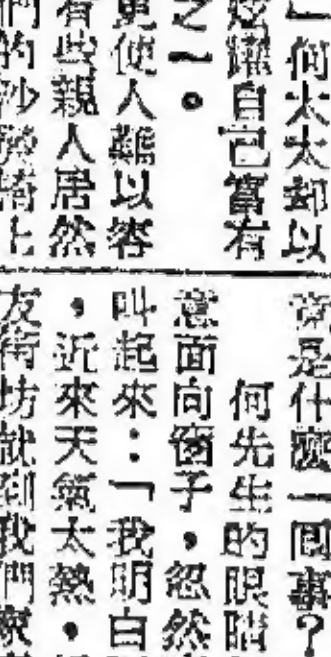 」何太太却以
炫耀自己富有
之一。
更使人難以容
有些親人居然
們的沙發椅上
竟是什麼一回事？
何先生的眼睛
意面向窗子，忽然
叫起來：「我明白
，近來天氣太熱，
友街坊就到我們家